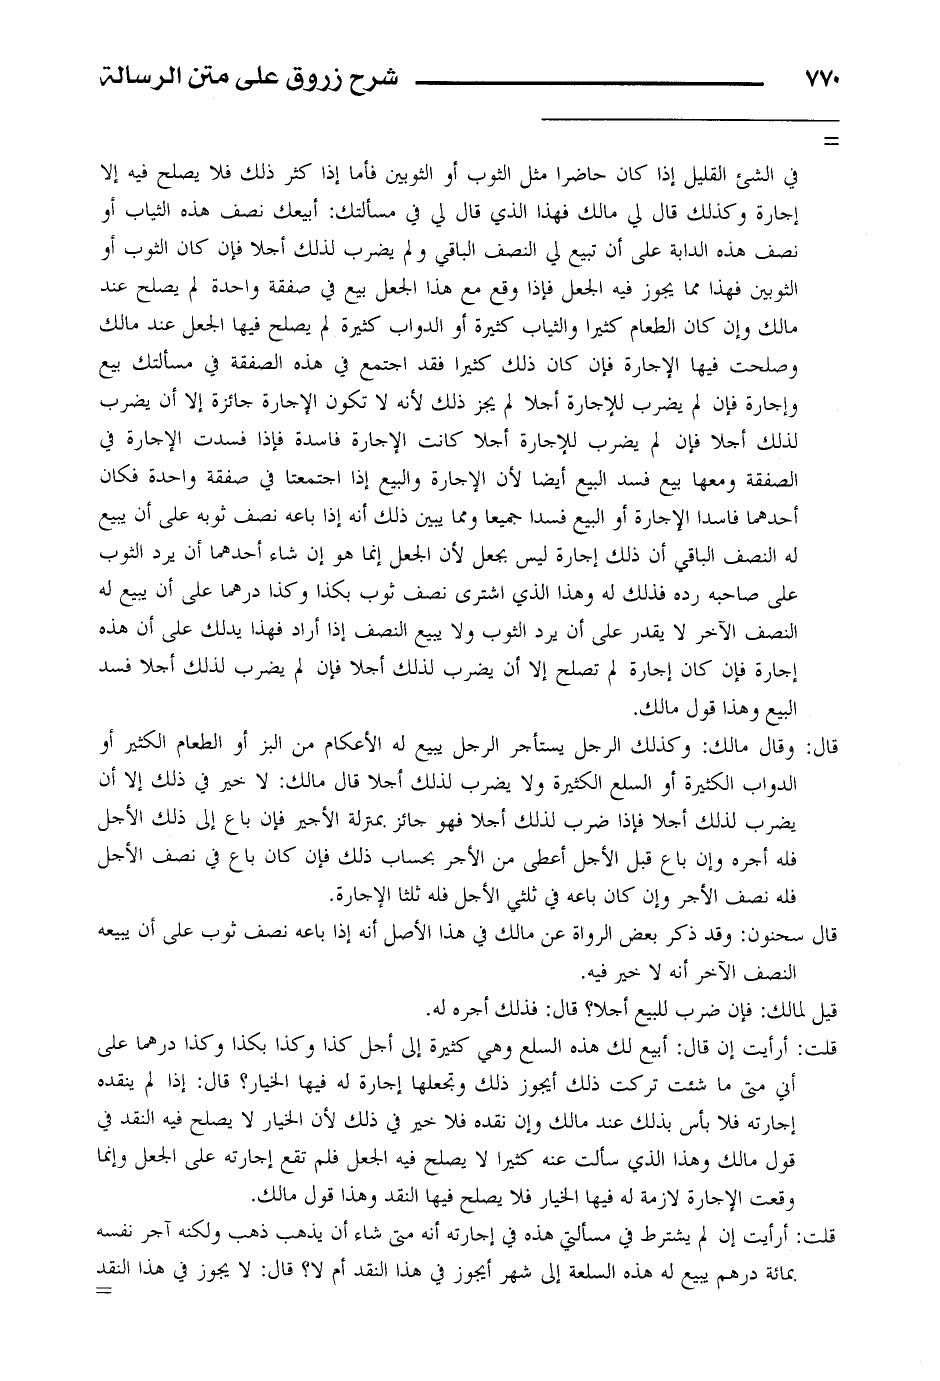 ٧٧٠ شرح زروق على متن الرسالة
=
في الشئ القليل إذا كان حاضرا مثل الثوب أو الثوبين فأما إذا كثر ذلك فلا يصلح فيه إلا
إجارة وكذلك قال لي مالك فهذا الذي قال لي في مسألتك: أبيعك نصف هذه الثياب أو
نصف هذه الدابة على أن تبيع لي النصف الباقي ولم يضرب لذلك أجلا فإن كان الثوب أو
الثوبين فهذا مما يجوز فيه الجعل فإذا وقع مع هذا الجعل بيع في صفقة واحدة لم يصلح عند
مالك وإن كان الطعام كثيرا والثياب كثيرة أو الدواب كثيرة لم يصلح فيها الجعل عند مالك
وصلحت فيها الإجارة فإن كان ذلك كثيرا فقد اجتمع في هذه الصفقة في مسألتك بيع
وإجارة فإن لم يضرب للإجارة أجلا لم يجز ذلك لأنه لا تكون الإجارة جائزة إلا أن يضرب
لذلك أجلا فإن لم يضرب للإجارة أجلا كانت الإجارة فاسدة فإذا فسدت الإجارة في
الصفقة ومعها بيع فسد البيع أيضا لأن الإجارة والبيع إذا اجتمعتا في صفقة واحدة فكان
أحدهما فاسدا الإجارة أو البيع فسدا جميعا ومما يبين ذلك أنه إذا باعه نصف ثوبه على أن يبيع
له النصف الباقي أن ذلك إجارة ليس بجعل لأن الجعل إنما هو إن شاء أحدهما أن يرد الثوب
على صاحبه رده فذلك له وهذا الذي اشترى نصف ثوب بكذا وكذا درهما على أن يبيع له
النصف الآخر لا يقدر على أن يرد الثوب ولا يبيع النصف إذا أراد فهذا يدلك على أن هذه
إجارة فإن كان إجارة لم تصلح إلا أن يضرب لذلك أجلا فإن لم يضرب لذلك أجلا فسد
البيع وهذا قول مالك.
قال: وقال مالك: وكذلك الرجل يستأجر الرجل يبيع له الأعكام من البز أو الطعام الكثير أو
الدواب الكثيرة أو السلع الكثيرة ولا يضرب لذلك أجلا قال مالك: لا خير في ذلك إلا أن
يضرب لذلك أجلا فإذا ضرب لذلك أجلا فهو جائز بمنزلة الأجير فإن باع إلى ذلك الأجل
فله أجره وإن باع قبل الأجل أعطى من الأجر بحساب ذلك فإن كان باع في نصف الأجل
فله نصف الأجر وإن كان باعه في ثلثي الأجل فله ثلثا الإجارة.
قال سحنون: وقد ذكر بعض الرواة عن مالك في هذا الأصل أنه إذا باعه نصف ثوب على أن يبيعه
النصف الآخر أنه لا خير فيه.
قيل لمالك: فإن ضرب للبيع أجلا؟ قال: فذلك أجره له.
قلت: أرأيت إن قال: أبيع لك هذه السلع وهي كثيرة إلى أجل كذا وكذا بكذا وكذا درهما على
أني متى ما شئت تركت ذلك أيجوز ذلك وتجعلها إجارة له فيها الخيار؟ قال: إذا لم ينقده
إجارته فلا بأس بذلك عند مالك وإن نقده فلا خير في ذلك لأن الخيار لا يصلح فيه النقد في
قول مالك وهذا الذي سألت عنه كثيرا لا يصلح فيه الجعل فلم تقع إجارته على الجعل وإنما
وقعت الإجارة لازمة له فيها الخيار فلا يصلح فيها النقد وهذا قول مالك.
قلت: أرأيت إن لم يشترط في مسألتي هذه في إجارته أنه متى شاء أن يذهب ذهب ولكنه آجر نفسه
بمائة درهم يبيع له هذه السلعة إلى شهر أيجوز في هذا النقد أم لا؟ قال: لا يجوز في هذا النقد
=